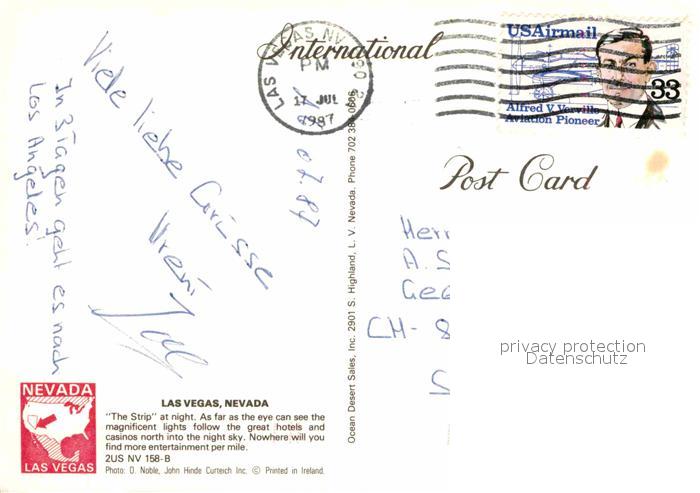 International
Post Card
LAS VEGAS, NV
PM
17 JUL
1987
USAirmail
33
Alfred V. Verville
Aviation Pioneer
Viele liebe Grüsse
Vreni
In 3 Tagen geht es nach
Los Angeles!
Ocean Desert Sales, Inc. 2901 S. Highland, L. V. Nevada. Phone 702
Herr
A. S
CH- 8
privacy protection
Datenschutz
NEVADA
LAS VEGAS
LAS VEGAS, NEVADA
"The Strip" at night. As far as the eye can see the
magnificent lights follow the great hotels and
casinos north into the night sky. Nowhere will you
find more entertainment per mile.
2US NV 158-B
Photo: D. Noble, John Hinde Curteich Inc. © Printed in Ireland.